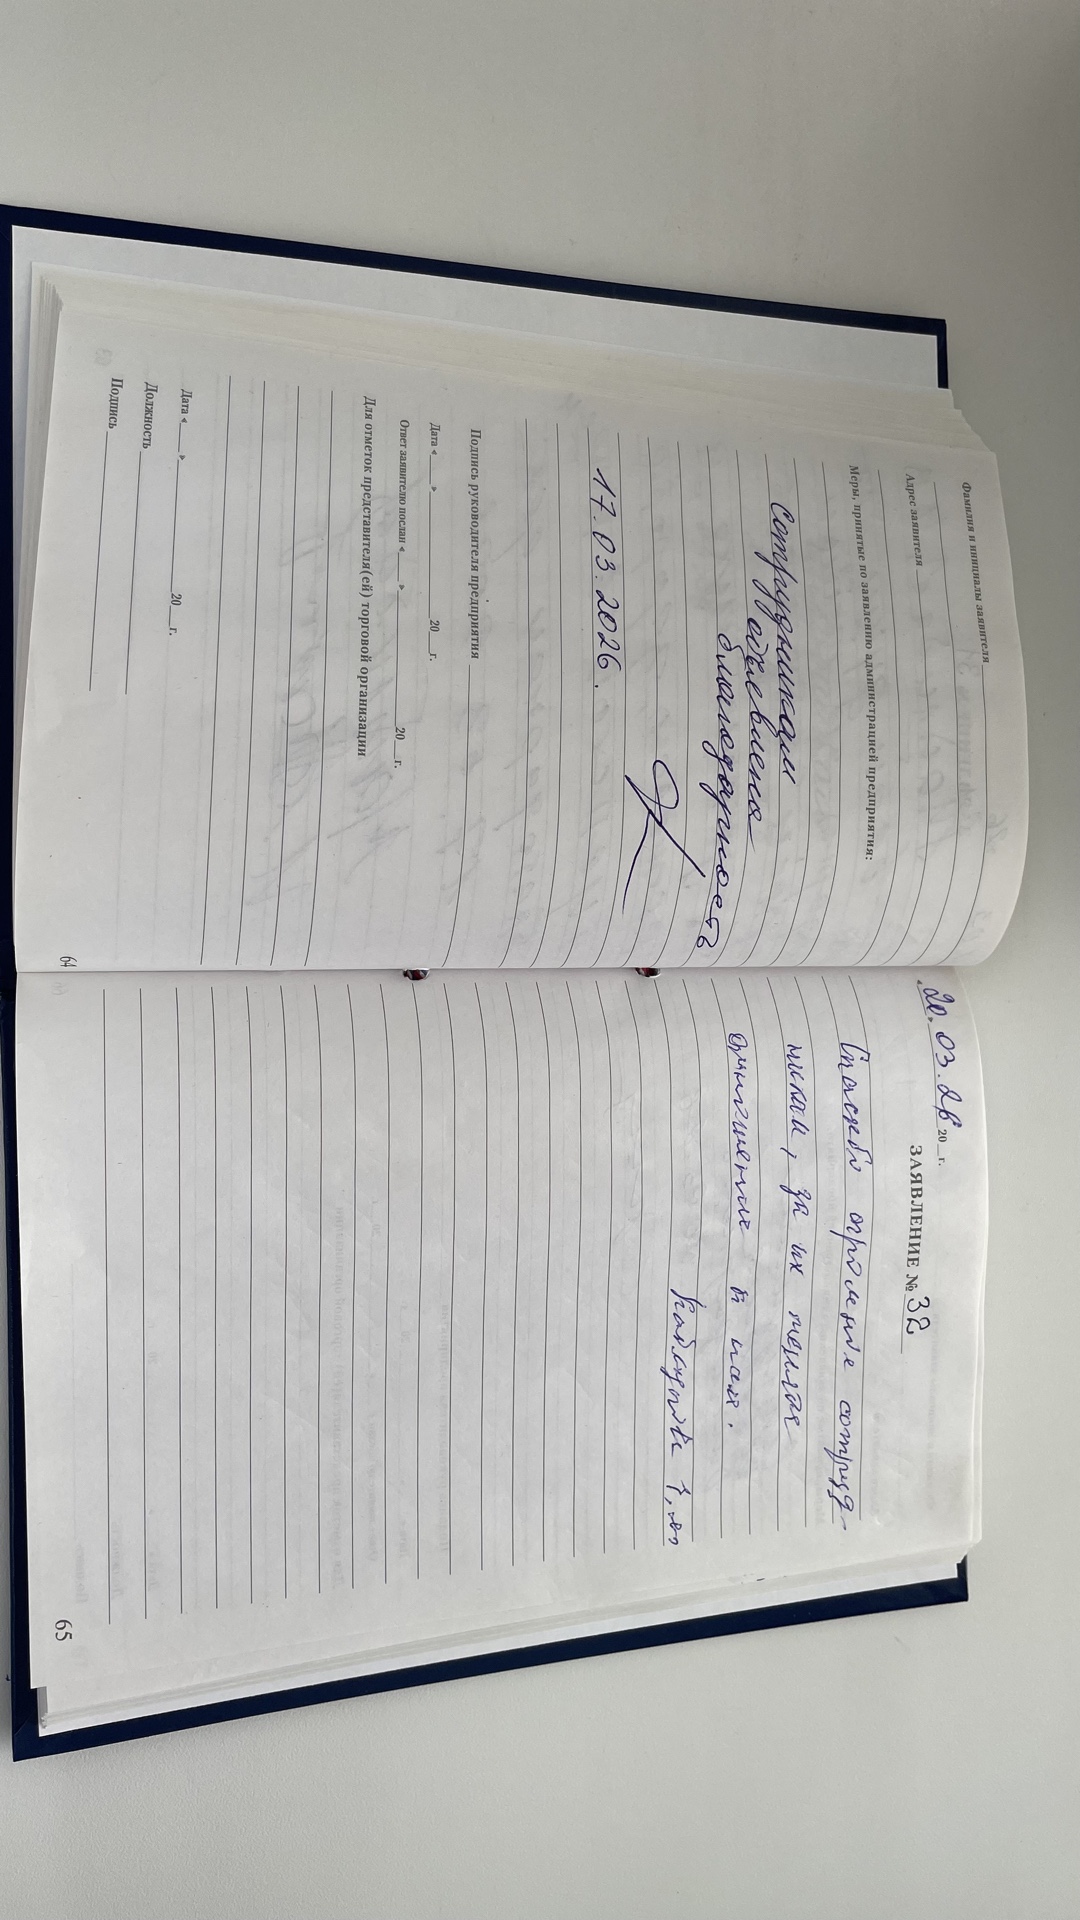 Фамилия и инициалы заявителя
Адрес заявителя
Меры, принятые по заявлению администрацией предприятия:
Сотрудникам
объявлена
благодарность
17.03.2026.
Подпись руководителя предприятия
Дата « » 20 г.
Ответ заявителю послан « » 20 г.
Для отметок представителя(ей) торговой организации
Дата « » 20 г.
Должность
Подпись
64
20.03.26 20 г.
ЗАЯВЛЕНИЕ № 32
Спасибо огромное сотруд-
никам, за их теплое
отношение к нам.
65